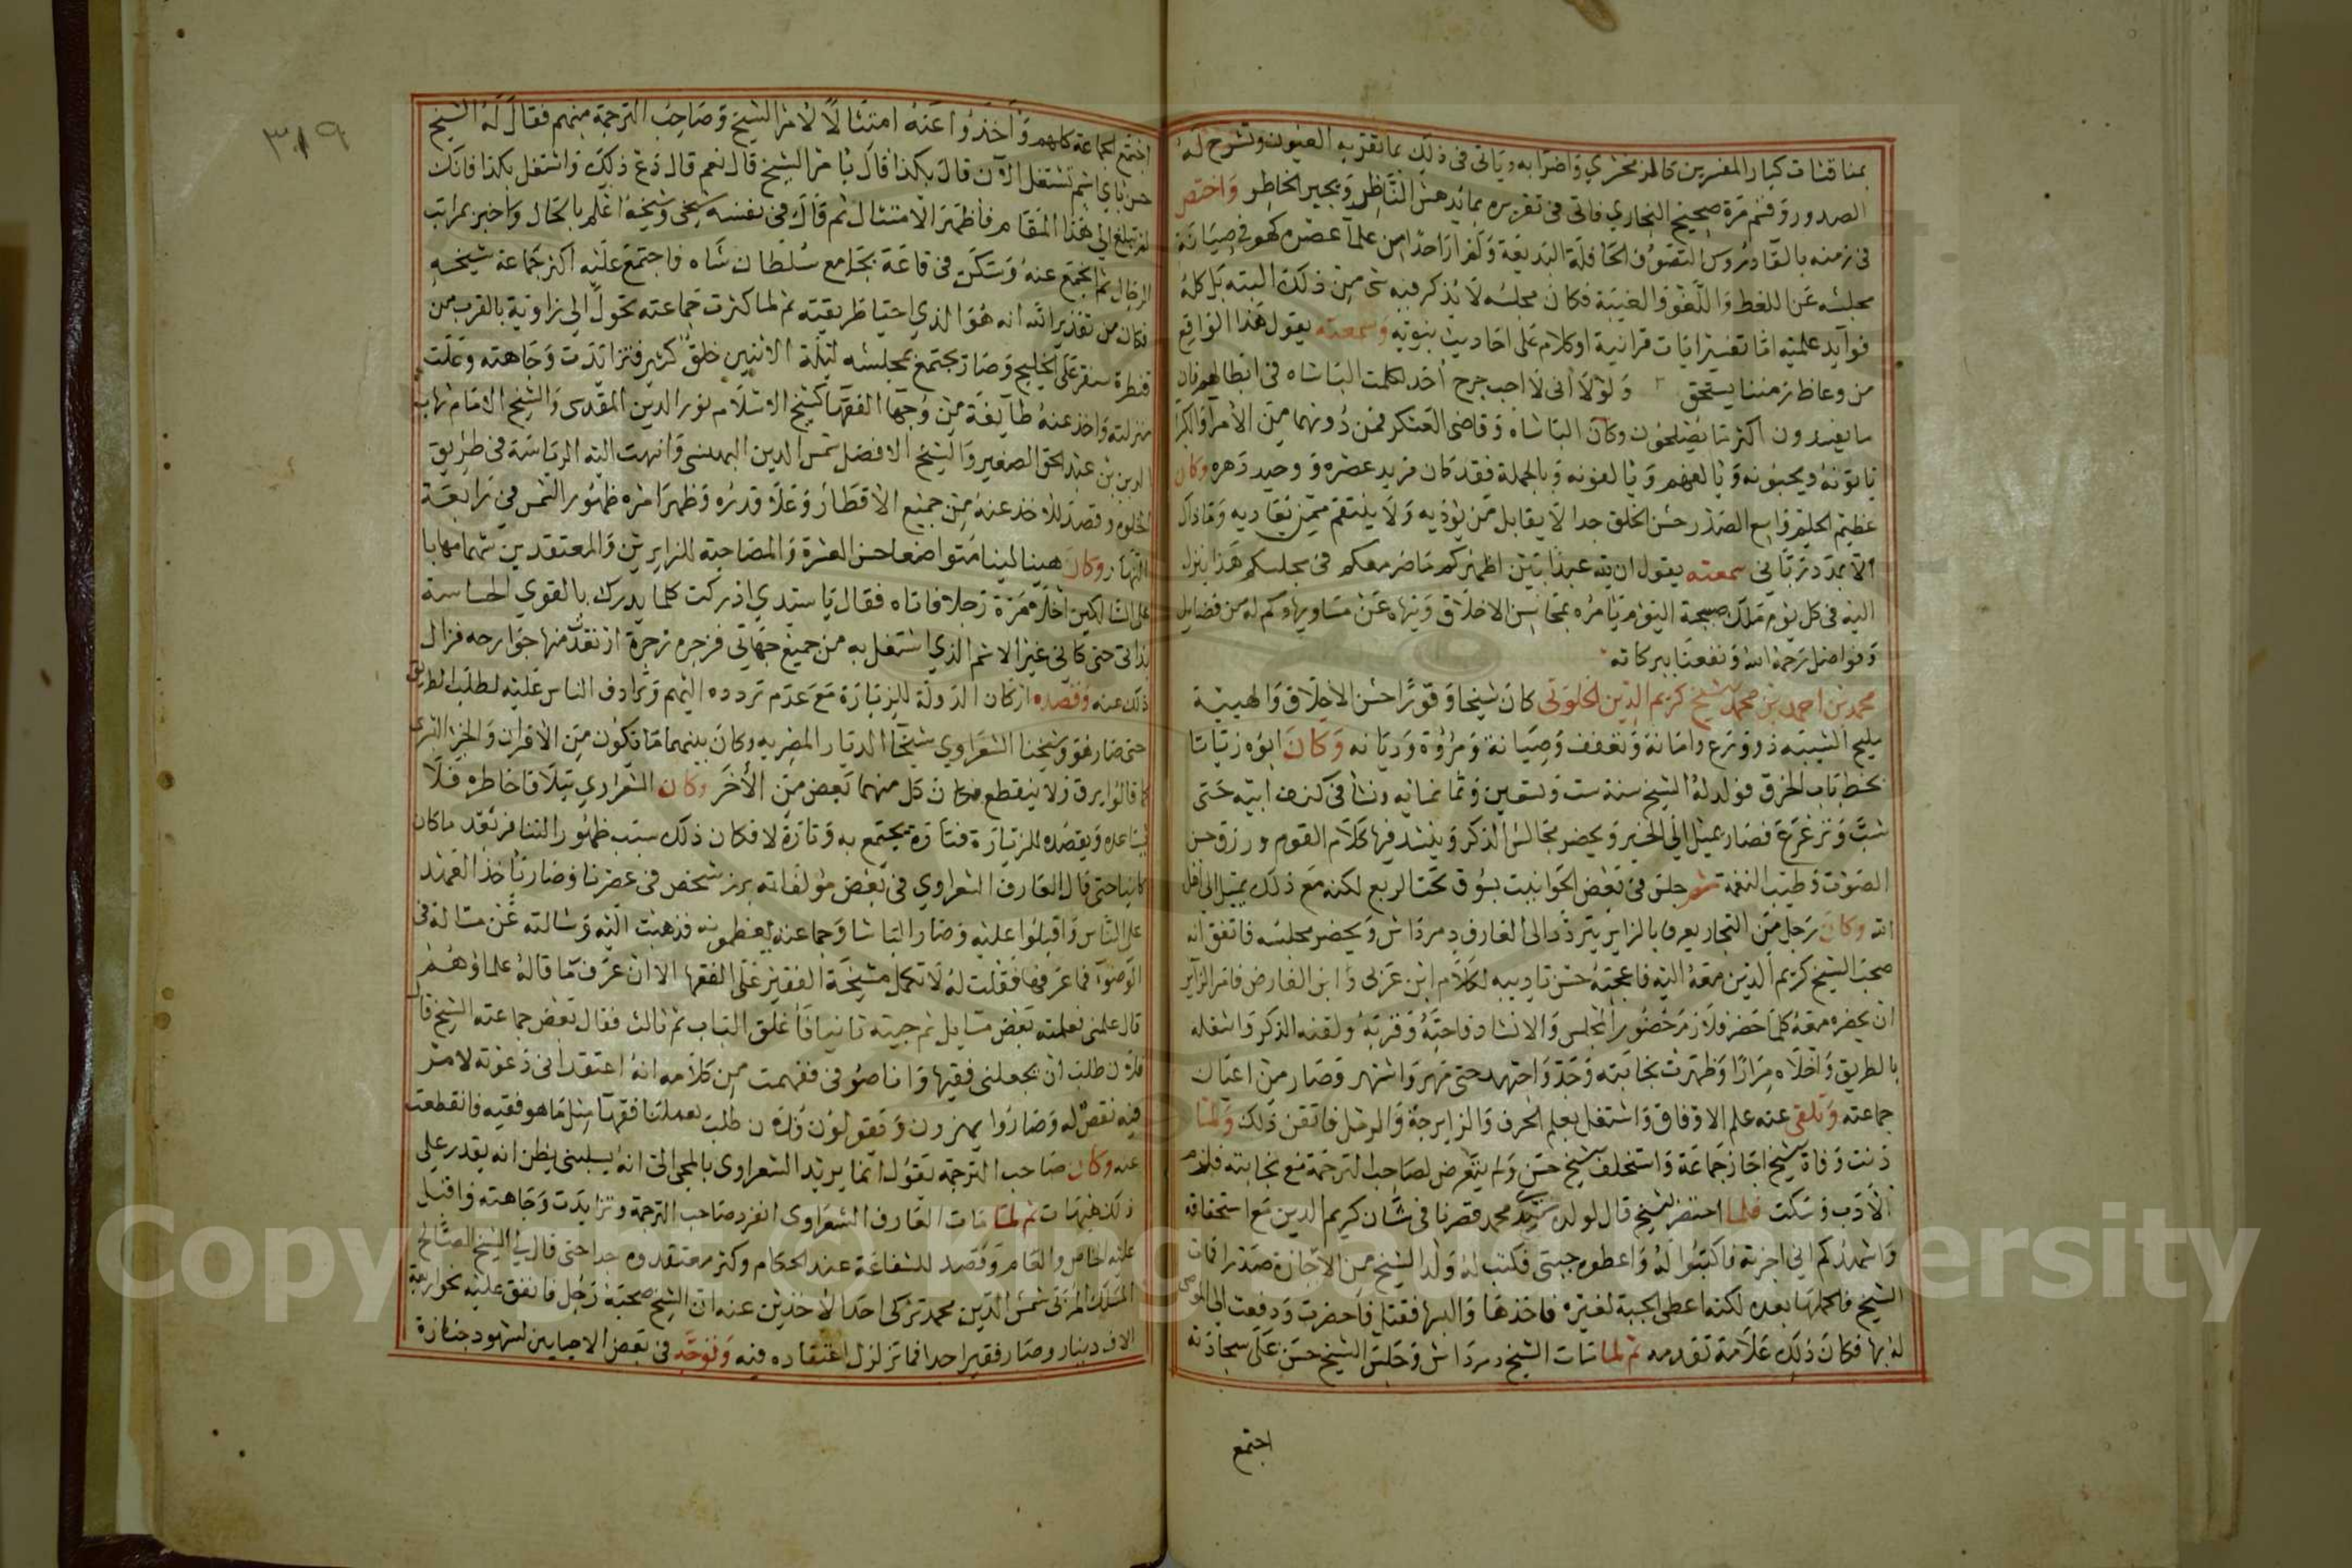 بمناقشات كبار المفسرين كالزمخشري واضرابه وياتي في ذلك بما تقر به العيون وتشرح له
الصدور وختم مرة صحيح البخاري فاتى في تقريره بما يدهش الناظر ويحير الخاطر واختص
في زمنه بالقا دروس التصوف الحافلة البديعة ولم ار احدا من علماء عصره كهو في صيانة
مجلسه عن اللغط واللغو والغيبة فكان مجلسه لا يذكر فيه شي من ذلك البته بل كله
فوآيد علمية اما تفسير ايات قرانية او كلام على احاديث نبوية وسمعته يقول هذا الواقع
من وعاظ زمننا يستحق ولولا اني لا احب جرح احد لكلمت الباشاه في ابطالهم فان
ما يفسدون اكثر مما يصلحون وكان الباشاه وقاضي العسكر فمن دونهما من الامرآ والكبرا
ياتونه ويحبونه ويالفهم ويالفونه وبالجملة فقد كان فريد عصره ووحيد دهره وكان
عظيم الحلم واسع الصدر حسن الخلق جدا لا يقابل من يؤذيه ولا ينتقم ممن يعاديه وما ذاك
الا بمدد رباني سمعته يقول ان لله عبدا بين اظهركم حاضر معكم في مجلسكم هذا ينزل
اليه في كل يوم ملك صبيحة اليوم يامره بمحاسن الاخلاق وينهاه عن مساويها وكم له من فضايل
وفواضل رحمه الله ونفعنا ببركاته
محمد بن احمد بن محمد الشيخ كريم الدين الخلوتي كان شيخا وقورا حسن الاخلاق والهيبة
مليح الشيبه ذو ورع وامانة وتعفف وصيانة ومروة وديانه وكان ابوه زياتا
بخط باب الخرق فولد له الشيخ سنة ست وتسعين وثمانمايه ونشا في كنف ابيه حتى
شب وترعرع فصار يميل الى الخير ويحضر مجالس الذكر وينشد فيها كلام القوم ورزق حسن
الصوت وطيب النغمة ثم جلس في بعض الحوانيت بسوق تحت الربع لكنه مع ذلك يميل الى اهل
الله وكان رجل من التجار يعرف بالزاير يتردد الى العارف دمرداش ويحضر مجلسه فاتفق انه
صحب الشيخ كريم الدين معه اليه فاعجبه حسن تاديبه لكلام ابن عربي وابن الفارض فامر الزاير
ان يحضره معه كلما حضر فلازم حضور المجلس والانشاد فاحبه وقربه ولقنه الذكر واشغله
بالطريق واخلاه مرارا وظهرت نجابته وجد واجتهد حتى مهر واشتهر وصار من اعيان
جماعته وتلقى عنه علم الاوفاق واشتغل بعلم الحرف والزايرجة والرمل فاتقن ذلك ولما
دنت وفاة الشيخ اجاز جماعة واستخلف الشيخ حسن ولم يتعرض لصاحب الترجمة مع نجابته فلزم
الادب وسكت فلما احتضر الشيخ قال لولده سيدي محمد قصرنا في شان كريم الدين مع استحقاقه
واشهدكم اني اجزته فاكتبوا له واعطوه جبتي فكتب له ولد الشيخ من الاجازة صدرا فمات
الشيخ فاكملها بعده لكنه اعطى الجبة لغيره فاخذها والبسها فقتل فاحضرت ودفعت الى الموصى
له بها فكان ذلك علامة تقدمه ثم لما مات الشيخ دمرداش وجلس الشيخ حسن على سجادته
اجتمع
٣١٩
اجتمع الجماعة كلهم واخذوا عنه امتثالا لامر الشيخ وصاحب الترجمة منهم فقال له الشيخ
حسن باي اسم تشتغل الآن قال بكذا قال بامر الشيخ قال نعم قال دع ذلك واشتغل بكذا فانك
لم تبلغ الى هذا المقام فاظهر الامتثال ثم قال في نفسه شيخي وشيخه اعلم بالحال واخبر بمراتب
الرجال ثم انجمع عنه وسكن في قاعة بجامع سلطان شاه فاجتمع عليه اكثر جماعة شيخه
فكان من تقدير الله انه هو الذي احيا طريقته ثم لما كثرت جماعته تحول الى زاوية بالقرب من
قنطرة سنقر على الخليج وصار يجتمع بمجلسه ليلة الاثنين خلق كثير فتزايدت وجاهته وعلت
منزلته واخذ عنه طآيفة من وجها الفقها كشيخ الاسلام نور الدين المقدسي والشيخ الامام شهاب
الدين بن عبد الحق الصغير والشيخ الافضل شمس الدين البهنسي وانتهت اليه الرياسة في طريق
الخلوة وقصد للاخذ عنه من جميع الاقطار وعلا قدره وظهر امره ظهور الشمس في رابعة
النهار وكان هينا لينا متواضعا حسن العشرة والمصاحبة للزايرين والمعتقدين شهما مهابا
على السالكين اخلا مرة رجلا فاتاه فقال يا سيدي ادركت كلما يدرك بالقوي الحساسة
بذاتي حتى كاني غير الاسم الذي اشتغل به من جميع جهاتي فزجره زجرة ارتعدت منها جوارحه فزال
ذلك عنه وقصده اركان الدولة للزيارة مع عدم تردده اليهم وترادف الناس عليه لطلب الطريق
حتى صار هو وشيخنا الشعراوي شيخا الديار المصريه وكان بينهما ما يكون من الاقران والخير الذي
كما قالوا يرق ولا ينقطع فكان كل منهما يغض من الآخر وكان الشعراوي يتلافا خاطره فلا
يساعده ويقصده للزيارة فتارة يجتمع به وتارة لا فكان ذلك سبب ظهور التنافر بعد ما كان
كامنا حتى قال العارف الشعراوي في بعض مؤلفاته برز شخص في عصرنا وصار ياخذ العهد
على الناس واقبلوا عليه وصار الباشا وجماعته يعظمونه فذهبت اليه وسالته عن مسالة في
الوضوء فما عرفها فقلت له لا تكمل مشيخة الفقير على الفقها الا ان عرف ما قاله علماؤهم
قال علمني فعلمته بعض مسايل ثم جيته ثانيا فاغلق الباب ثم ثالث فقال بعض جماعته الشيخ قال
فلان طلب ان يجعلني فقيها وانا صوفي ففهمت من كلامه انه اعتقد اني دعوته لامر
فيه نقص له وصاروا يهزون ويقولون فلان طلب يعملنا فقها مثل ما هو فقيه فانقطعت
عنه وكان صاحب الترجمة يقول انما يريد الشعراوي بالمجي الي انه يسلبني يظن انه يقدر على
ذلك هيهات ثم لما مات العارف الشعراوي انفرد صاحب الترجمة وتزايدت وجاهته واقبل
عليه الخاص والعام وقصد للشفاعة عند الحكام وكثر معتقدوه جدا حتى قال لي الشيخ الصالح
المسلك المربي شمس الدين محمد تركي احد الآخذين عنه ان الشيخ صحبه رجل فانفق عليه نحو اربعة
الاف دينار وصار فقيرا جدا فما تزلزل اعتقاده فيه وتوجه في بعض الاحيان لشهود جنازة